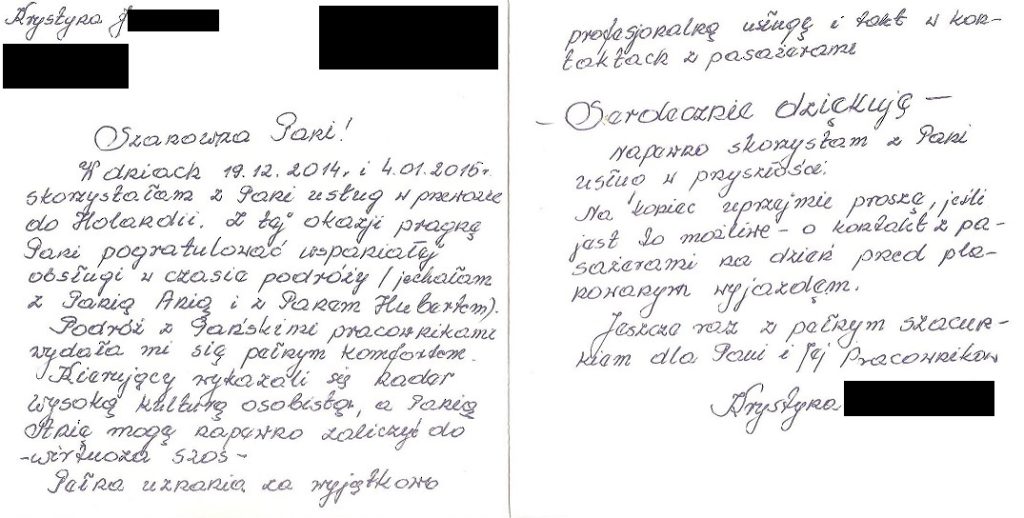 Krystyna J
Szanowna Pani!
W dniach 19.12.2014r. i 4.01.2015r.
skorzystałam z Pani usług w przewozie
do Holandii. Z tej okazji pragnę
Pani pogratulować wspaniałej
obsługi w czasie podróży / jechałam
z Panią Anią i z Panem Hubertem).
Podróż z Pańskimi pracownikami
wydała mi się pełnym komfortem.
Kierujący wykazali się nader
wysoką kulturą osobistą, a Panią
Anię mogę napewno zaliczyć do
-wirtuoza szos-
Pełna uznania za wyjątkowo
profesjonalną usługę i takt w kon-
taktach z pasażerami
- Serdecznie dziękuję -
Napewno skorzystam z Pani
usług w przyszłości.
Na koniec uprzejmie proszę, jeśli
jest to możliwe - o kontakt z pa-
sażerami na dzień przed pla-
nowanym wyjazdem.
Jeszcze raz z pełnym szacun-
kiem dla Pani i Jej Pracowników
Krystyna